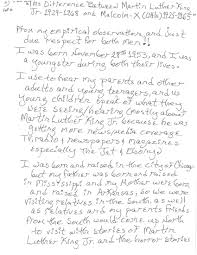 The Difference Between Martin Luther King
Jr. 1929-1968 and Malcolm-X (1925-1965)
From my empirical observation, and just
due respect for both men!!
I was born November 29th 1953, and I was
a youngster during both their lives.
I use to hear my parents and other
adults and young, teenagers, and us
young children speak of what they
were seeing/hearing mostly about
Martin Luther King Jr. because he was
getting more news/media coverage
TV, radio & newspapers & magazines
especially The Jet & Ebony)
I was born and raised in the city of Chicago
but my father was born and raised
in Mississippi and my Mother were born
and raised in Arkansas, so we were
visiting relatives in the South as well
as relatives and my parents friends
from the South would come up north
to visit with stories of Martin
Luther King Jr. and the horror stories